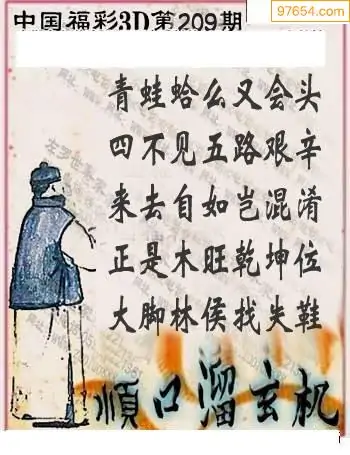 97654.com
中国福彩3D第209期
青蛙蛤么又会头
四不见五路艰辛
来去自如岂混淆
正是木旺乾坤位
大脚林侯找失鞋
顺口溜玄机